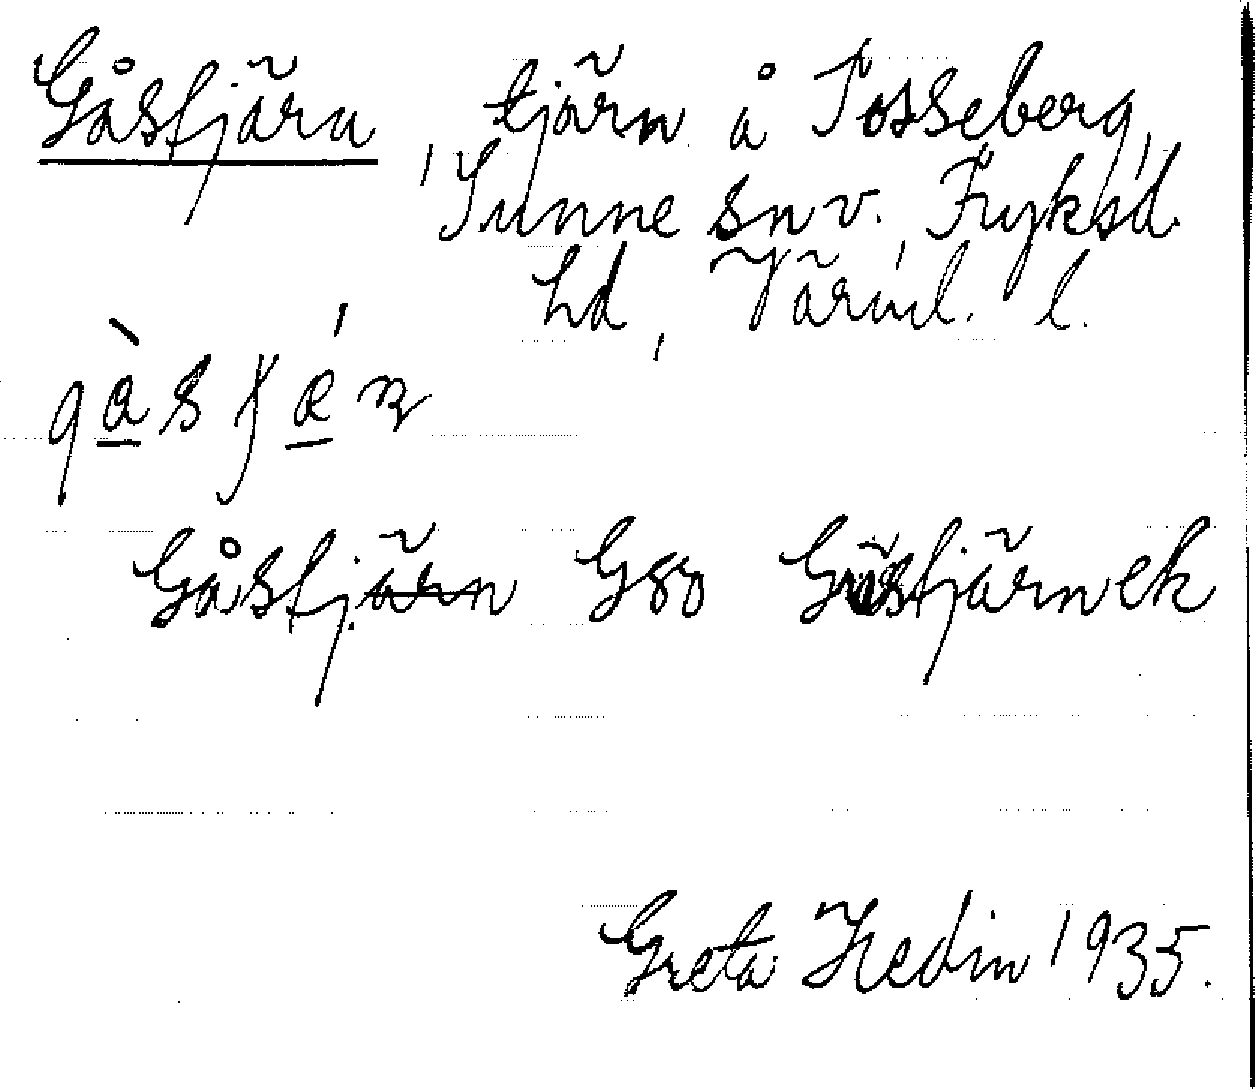 Gåstjärn tjärn å Tosseberg,
Sunne sn v. Fryksd.
hd, Värml. l.
Gåstjärn Gso Gåstjärn ek
Greta Hedin 1935.